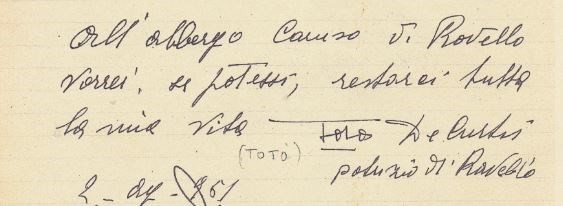 All'albergo Caruso di Ravello
vorrei, se potessi, restarci tutta
la mia vita Totò De Curtis
(TOTÒ)
patrizio di Ravello